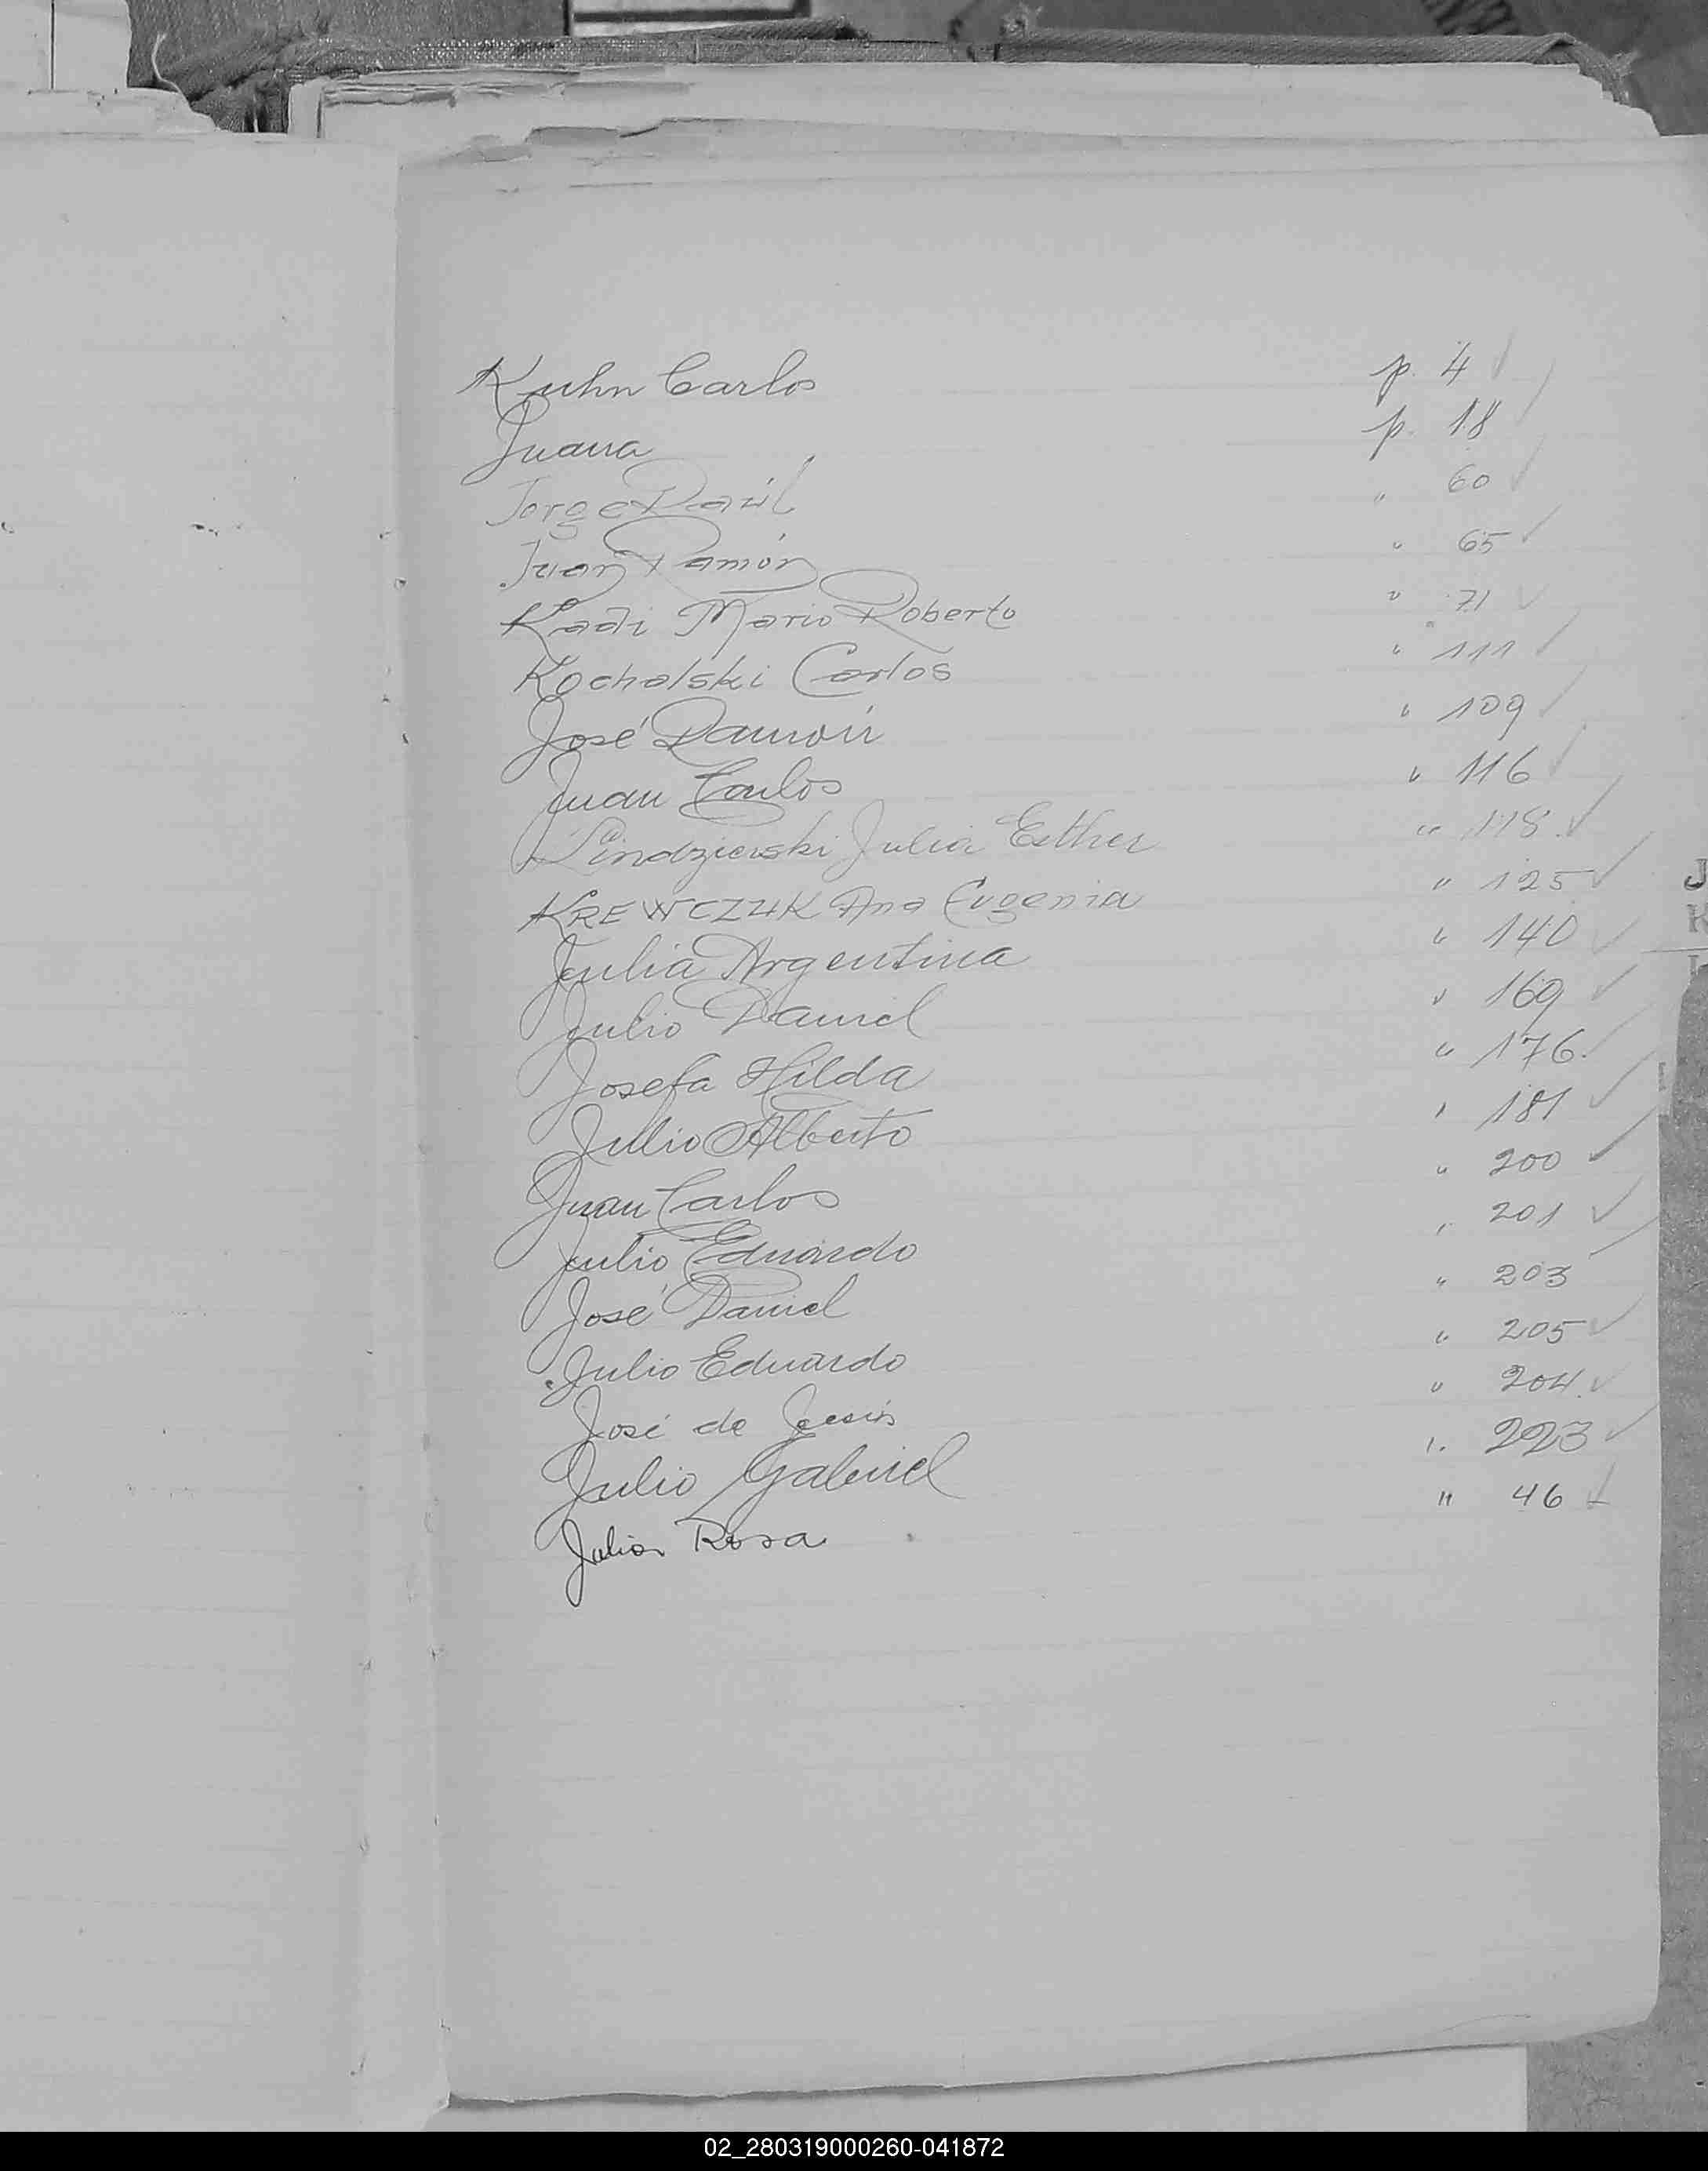 Kuhn Carlos p. 4 ✓
Juana p. 18
Jorge Raúl " 60 ✓
Juan Ramón " 65 ✓
Kadi Mario Roberto " 71 ✓
Kochalski Carlos " 111 ✓
José Ramón " 109 ✓
Juan Carlos " 116 ✓
Julia Esther " 118. ✓
KREWCZUK Ana Eugenia " 125 ✓
Julia Argentina " 140 ✓
Julio Daniel " 169 ✓
Josefa Hilda " 176.
Julio Alberto " 181 ✓
Juan Carlos " 200 ✓
Julio Eduardo " 201 ✓
José Daniel " 203
Julio Eduardo " 205 ✓
José de Jesús " 204. ✓
Julio Gabriel " 223 ✓
Julia Rosa " 46 ✓
J
K
02_280319000260-041872